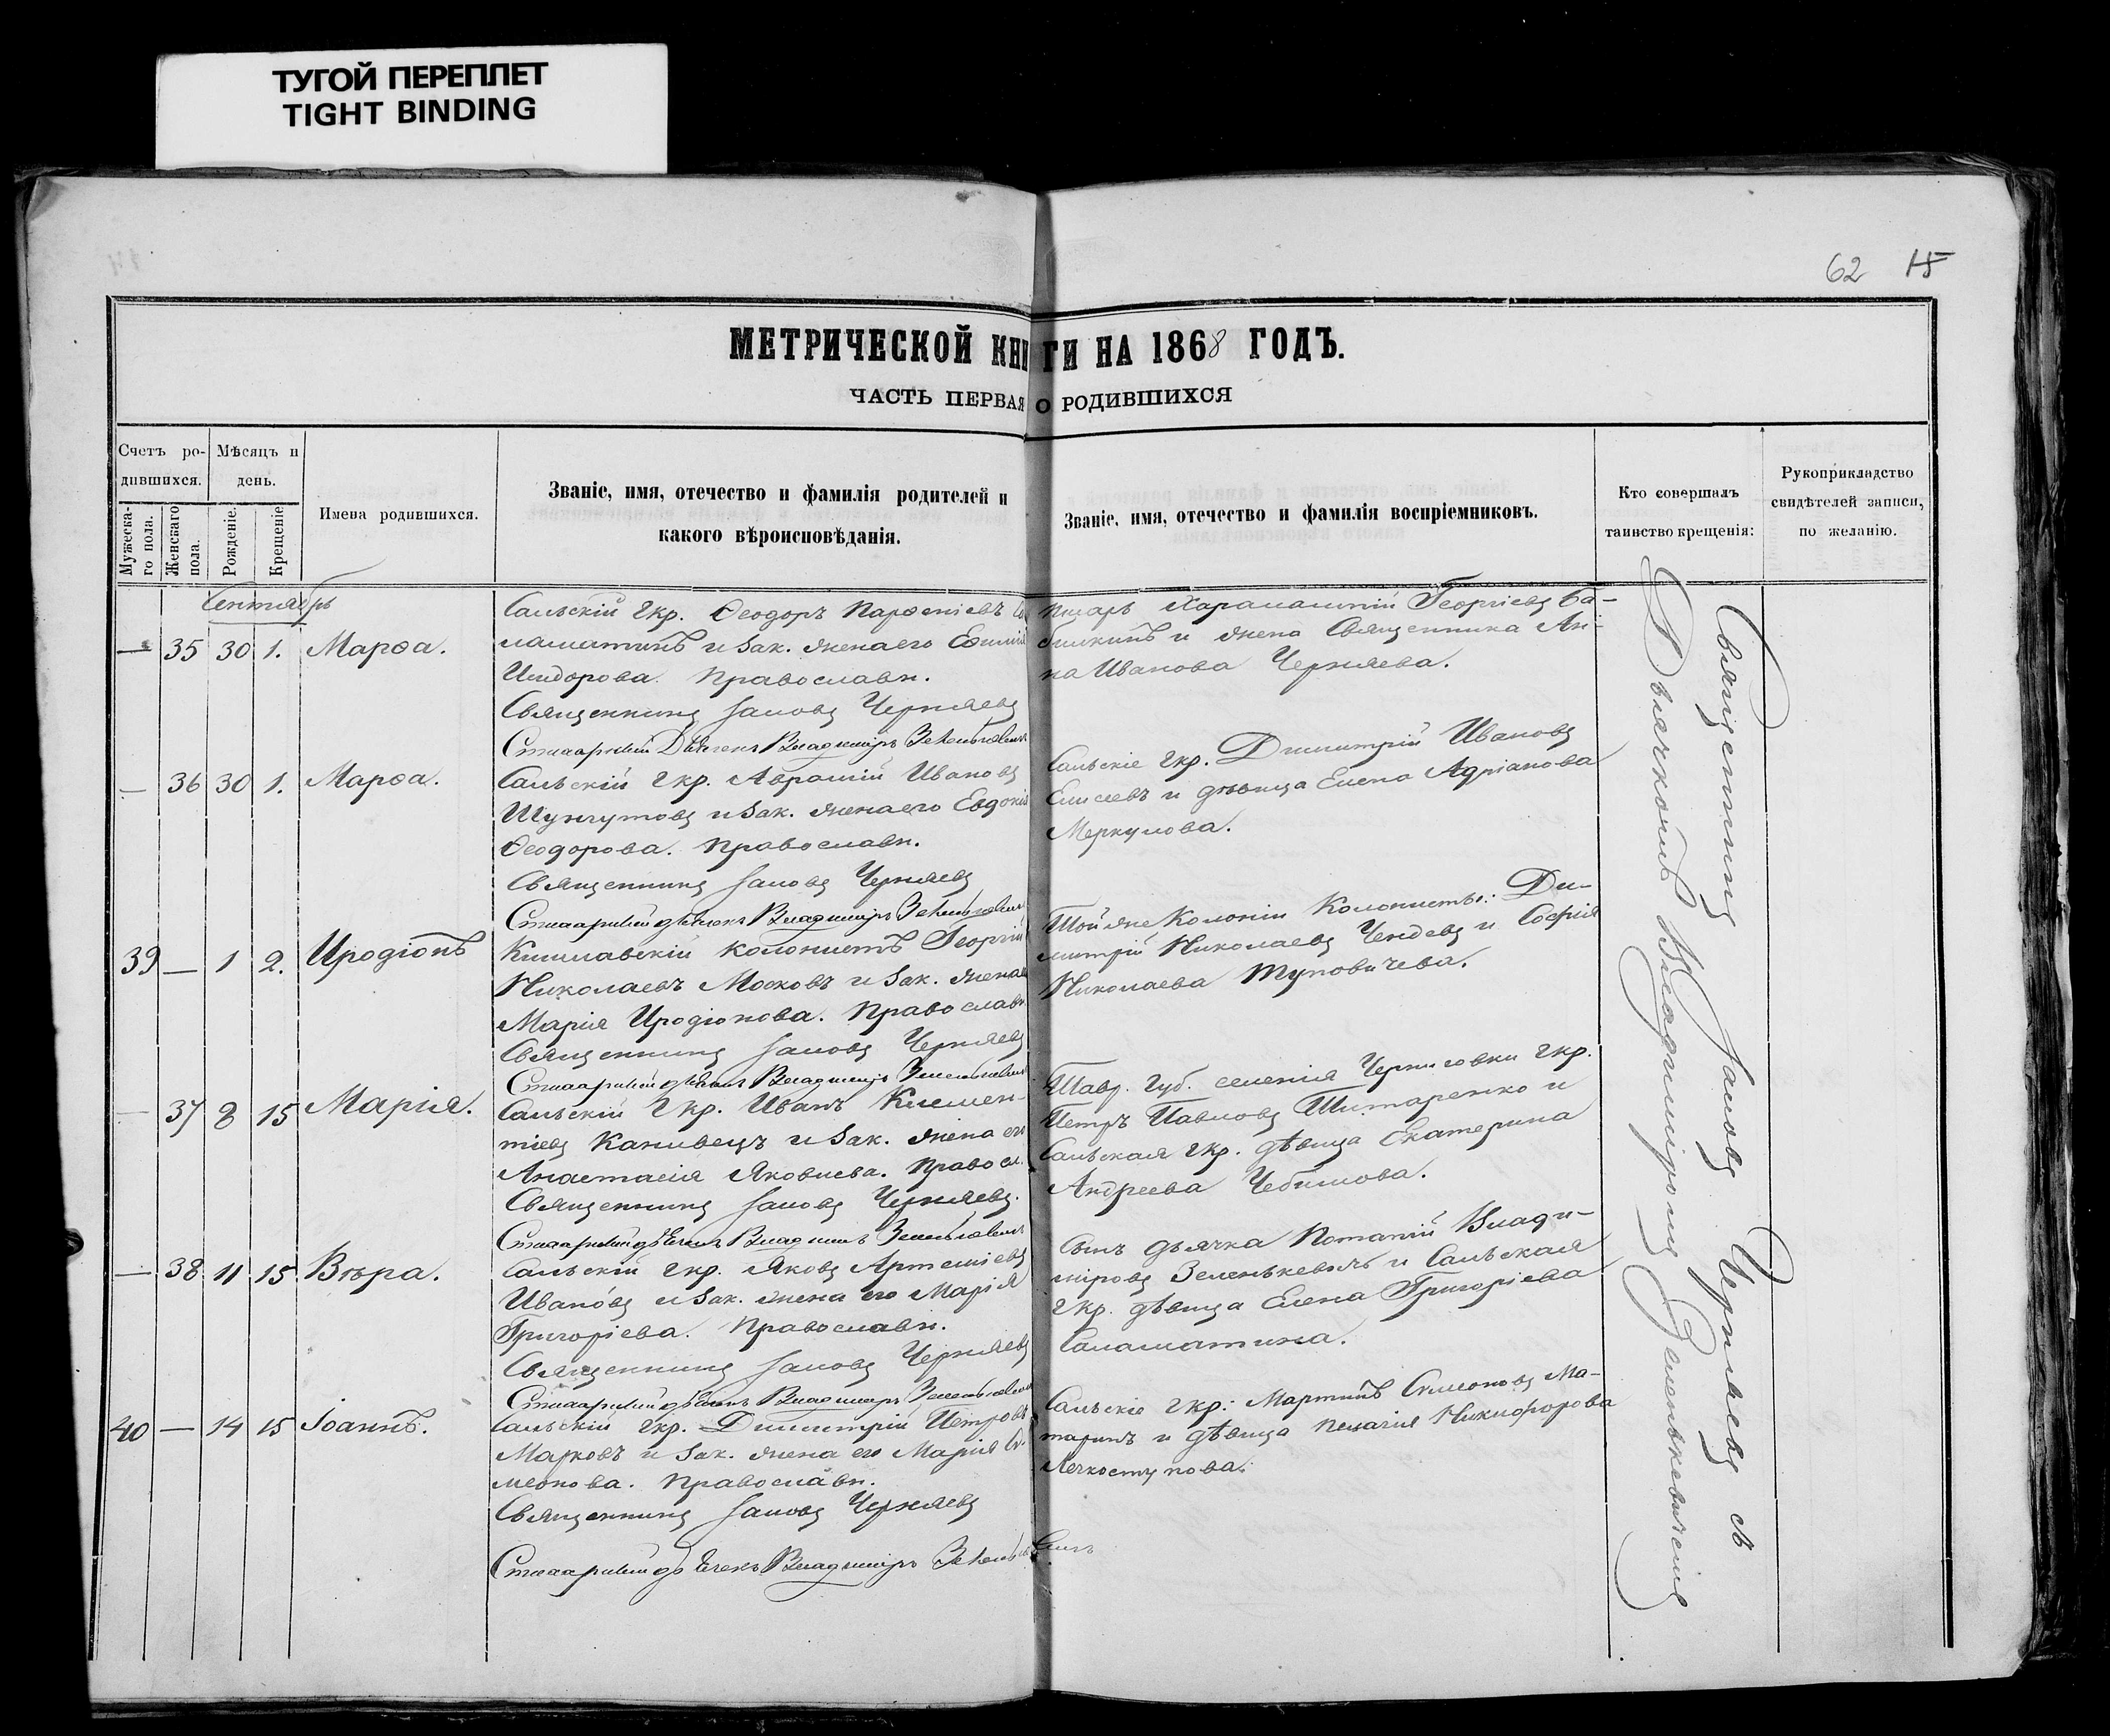 ТУГОЙ ПЕРЕПЛЕТ
TIGHT BINDING
62 15
МЕТРИЧЕСКОЙ КНИГИ НА 1868 ГОДЪ.
ЧАСТЬ ПЕРВАЯ О РОДИВШИХСЯ
Счетъ ро-
дившихся.
Мужеска-
го пола.
Женскаго
пола.
Мѣсяцъ и
день.
Рожденіе.
Крещеніе
Имена родившихся.
Званіе, имя, отечество и фамилія родителей и
какого вѣроисповѣданія.
Званіе, имя, отечество и фамилія воспріемниковъ.
Кто совершалъ
таинство крещенія:
Рукоприкладство
свидѣтелей записи,
по желанію.
Сентябрь
— 35 30 1. Марѳа.
Сальскій гкр. Ѳеодоръ Парѳеніевъ Са
ламатинъ и зак. жена его Евѳимія
Исидорова. Православн.
Священникъ Іаковъ Черняевъ
Стихарный Дьячекъ Владиміръ Зеленькевичъ
Писарь Харалампій Георгіевъ
и жена Священника Ан-
на Иванова Черняева.
— 36 30 1. Марѳа.
Сальскій гкр. Аврамій Ивановъ
Шунгутовъ и зак. жена его Евдокія
Ѳеодорова. Православн.
Священникъ Іаковъ Черняевъ
Стихарный дьячекъ Владиміръ Зеленькевичъ
Сальскіе гкр. Димитрій Ивановъ
Елисеевъ и дѣвица Елена Адріанова
Меркулова.
39 — 1 2. Иродіонъ
Кишлавскій колонистъ Георгій
Николаевъ Московъ и зак. жена его
Марія Иродіонова. Православн
Священникъ Іаковъ Черняевъ
Стихарный дьячекъ Владиміръ Зеленькевичъ
Той же Колоніи Колонисты: Ди-
митрій Николаевъ Чендевъ и Софія
Николаева Туповичева.
— 37 8 15 Марія.
Сальскій гкр. Иванъ Климен-
тіевъ Канивецъ и зак. жена его
Анастасія Яковлева. Правосл.
Священникъ Іаковъ Черняевъ.
Стихарный дьячекъ Владиміръ Зеленькевичъ
Тавр. губ. селенія Черниговки гкр.
Петръ Павловъ Шитаренко и
Сальская гкр. дѣвица Екатерина
Андреева Чебишова.
— 38 11 15 Вѣра.
Сальскій гкр. Яковъ Артеміевъ
Ивановъ и зак. жена его Марія
Григоріева. Православн.
Священникъ Іаковъ Черняевъ
Стихарный дьячекъ Владиміръ Зеленькевичъ
Сынъ дьячка Потапій Влади-
міровъ Зеленькевичъ и Сальская
гкр. дѣвица Елена Григоріева
Саламатина.
40 — 14 15 Іоаннъ.
Сальскій гкр. Димитрій Петровъ
Марковъ и зак. жена его Марія Си-
меонова. Православн.
Священникъ Іаковъ Черняевъ
Стихарный дьячекъ Владиміръ Зеленькевичъ
Сальскіе гкр: Мартинъ Симеоновъ Ма-
таринъ и дѣвица Пелагія Никифорова
Легкоступова.
Священникъ Іаковъ Черняевъ съ
Дьячкомъ Владиміромъ Зеленькевичемъ